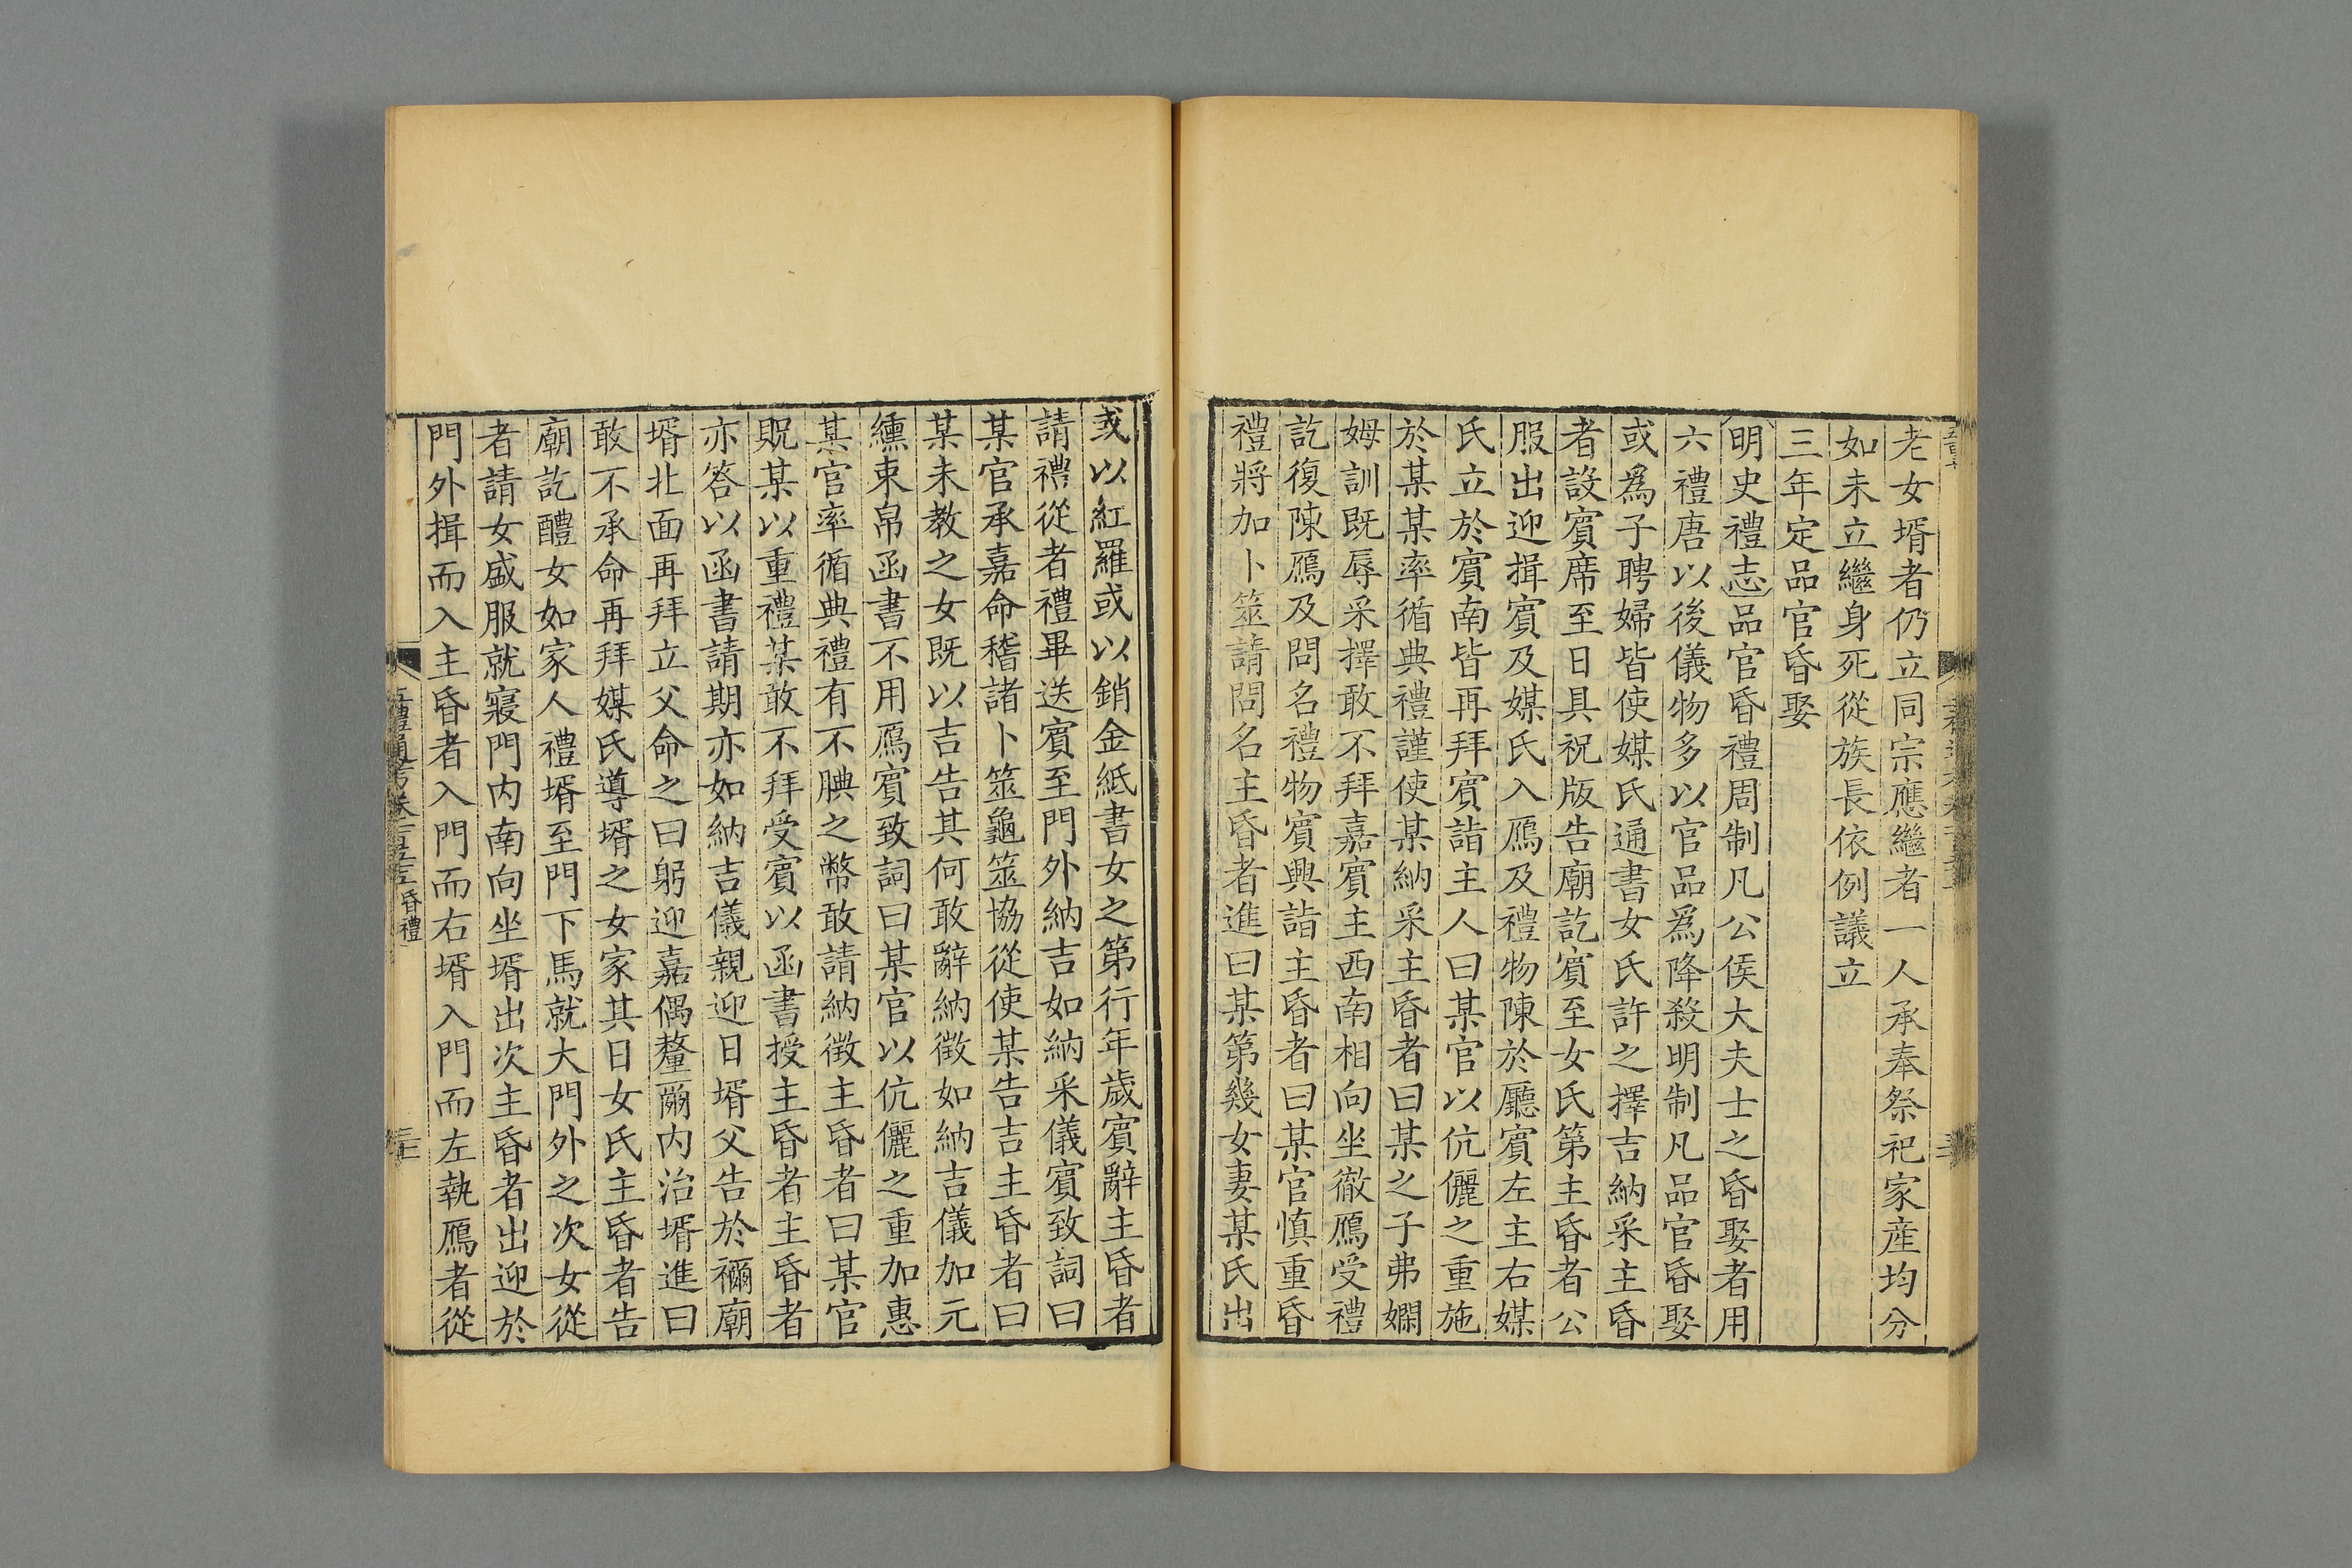 老女壻者仍立同宗應繼者一人承奉祭祀家産均分
如未立繼身死從族長依例議立
三年定品官昏娶
明史禮志品官昏禮周制凡公侯大夫士之昏娶者用
六禮唐以後儀物多以官品爲降殺明制凡品官昏娶
或爲子聘婦皆使媒氏通書女氏許之擇吉納采主昏
者設賓席至日具祝版告廟訖賓至女氏第主昏者公
服出迎揖賓及媒氏入鴈及禮物陳於廳賓左主右媒
氏立於賓南皆再拜賓詣主人曰某官以伉儷之重施
於某某率循典禮謹使某納采主昏者曰某之子弗嫻
姆訓既辱采擇敢不拜嘉賓主西南相向坐徹鴈受禮
訖復陳鴈及問名禮物賓興詣主昏者曰某官慎重昏
禮將加卜筮請問名主昏者進曰某第幾女妻某氏出
或以紅羅或以銷金紙書女之第行年歲賓辭主昏者
請禮從者禮畢送賓至門外納吉如納采儀賓致詞曰
某官承嘉命稽諸卜筮龜筮協從使某告吉主昏者曰
某未教之女既以吉告其何敢辭納徵如納吉儀加元
纁束帛函書不用鴈賓致詞曰某官以伉儷之重加惠
某官率循典禮有不腆之幣敢請納徵主昏者曰某官
貺某以重禮某敢不拜受賓以函書授主昏者主昏者
亦答以函書請期亦如納吉儀親迎日壻父告於禰廟
壻北面再拜立父命之曰躬迎嘉偶釐爾内治壻進曰
敢不承命再拜媒氏導壻之女家其日女氏主昏者告
廟訖醴女如家人禮壻至門下馬就大門外之次女從
者請女盛服就寢門内南向坐壻出次主昏者出迎於
門外揖而入主昏者入門而右壻入門而左執鴈者從
五禮通考卷一百五十五 昏禮